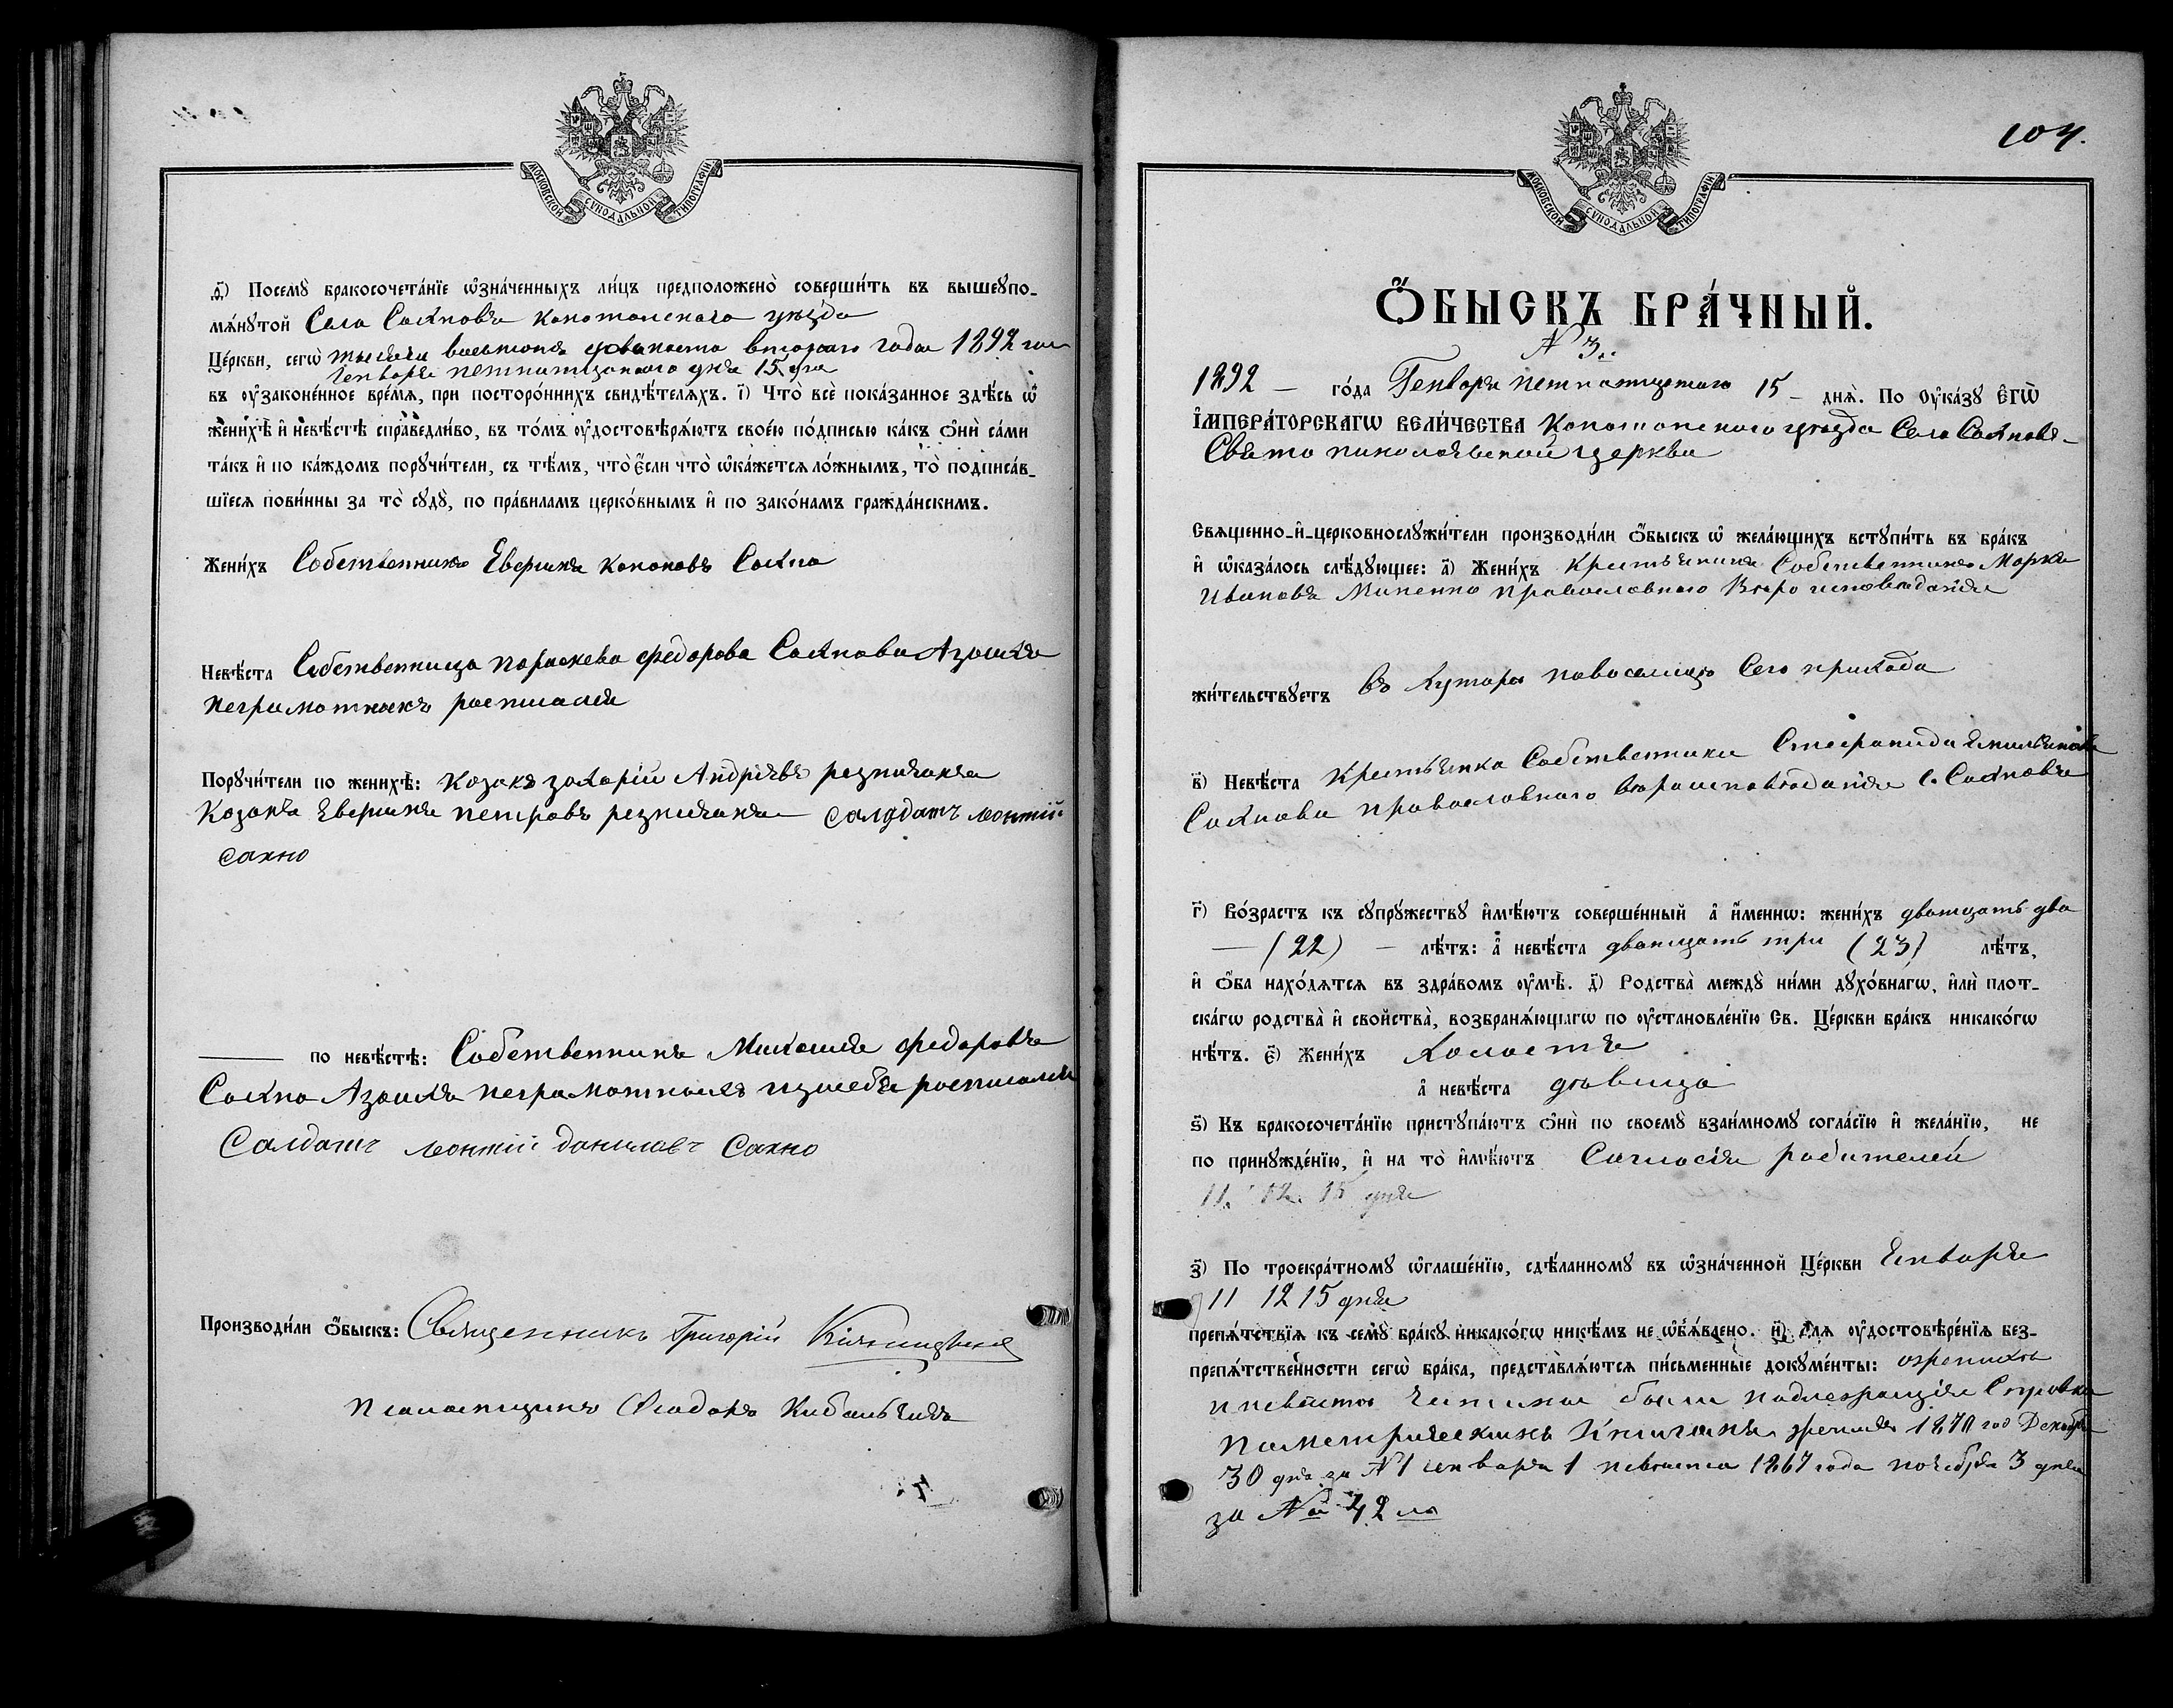 МОСКОВСКОЙ СѴНОДАЛЬНОЙ ТИПОГРАФІИ
ѳ҃) Посемꙋ̀ бракосочета́нїе ѡ҆зна́ченныхъ ли́цъ предположено̀ соверши́ть въ вышеꙋпо-
мѧ́нꙋтой Села Сахновъ Конотопскаго уѣзда
Це́ркви, сегѡ̀ тысяча восьмсотъ девяносто второго года 1892 год
Генваря петнатцатаго дня 15 дня
въ ᲂу҆законе́нное вре́мѧ, при посторо́ннихъ свидѣ́телѧхъ. і҃) Что̀ всѐ пока́занное здѣ́сь ѡ҆
женихѣ̀ и҆ невѣ́стѣ справедли́во, въ то́мъ ᲂу҆достовѣрѧ́ютъ свое́ю по́дписью ка́къ ѻ҆нѝ са́ми
та́къ и҆ по ка́ждомъ порꙋчи́тели, съ тѣ́мъ, что̀ є҆́сли что̀ ѡ҆ка́жетсѧ ло́жнымъ, то̀ подписа́в-
шїесѧ пови́нны за то̀ сꙋдꙋ̀, по пра́виламъ церко́внымъ и҆ по зако́намъ гражда́нскимъ.
Жени́хъ Собственникъ Еверикъ Кононовъ Сахно
Невѣ́ста Собственница Параскева Федорова Сахнова Азаихъ
неграмотныхъ росписался
Порꙋчи́тели по женихѣ̀: Козакъ Захарій Андріевъ резниченко
Козакъ Еверикъ петровъ резниченко Салдатъ леонтій
сахно
по невѣ́стѣ: Собственникъ Михаилъ Федоровъ
Сахно Азаихъ неграмотныхъ изасебя росписался
Салдатъ леонтій данилавъ Сахно
Производи́ли ѻ҆́быскъ: Священникъ Григорій
псаломщикъ Феодоръ Кибальчичъ
104.
МОСКОВСКОЙ СѴНОДАЛЬНОЙ ТИПОГРАФІИ
Ѻ҆́БЫСКЪ БРА́ЧНЫЙ.
N 3.
1892 — го́да Генваря петнатцетаго 15 — днѧ̀. По ᲂу҆ка́зꙋ Є҆ГѠ̀
І҆МПЕРА́ТОРСКАГѠ ВЕЛИ́ЧЕСТВА Конотопскаго уѣзда Села Сахновъ-
Свято николаевской церкви
Свѧщенно-и҆-церковнослꙋжи́тели производи́ли ѻ҆́быскъ ѡ҆ жела́ющихъ встꙋпи́ть въ бра́къ
и҆ ѡ҆каза́лось слѣ́дꙋющее: а҃) Жени́хъ Крестьянинъ Собственникъ Марко
Ивановъ Миненко православного Вероисповеданія
жи́тельствꙋетъ въ Хуторѣ Новоселицѣ Сего прихода
в҃) Невѣ́ста Крестьянка Собственники Стефанида Емильянова
Сахнова православного вероисповѣданія с. Сахновъ
г҃) Во́зрастъ къ сꙋпрꙋ́жествꙋ и҆мѣ́ютъ соверше́нный а҆ и҆́меннѡ: жени́хъ дватцать два
— (22) — лѣ́тъ: а҆ невѣ́ста дватцать три (23) лѣ́тъ,
и҆ ѻ҆́ба нахо́дѧтсѧ въ здра́вомъ ᲂу҆мѣ̀. д҃) Родства̀ междꙋ̀ ни́ми дꙋхо́внагѡ, и҆лѝ плот-
ска́гѡ родства̀ и҆ свойства̀, возбранѧ́ющагѡ по ᲂу҆становле́нїю Св. Це́ркви бра́къ никако́гѡ
нѣ́тъ. є҃) Жени́хъ холостъ
а҆ невѣ́ста дѣвица
ѕ҃) Къ бракосочета́нїю пристꙋпа́ютъ ѻ҆нѝ по своемꙋ̀ взаи́мномꙋ согла́сїю и҆ жела́нїю, не
по принꙋжде́нїю, и҆ на то̀ и҆мѣ́ютъ Сагласія радителей
11. 12. 15 дня
з҃) По троекра́тномꙋ ѡ҆глаше́нїю, сдѣ́ланномꙋ въ ѡ҆зна́ченной Це́ркви Генваря
11 12 15 дня
препѧ́тствїѧ къ семꙋ̀ бра́кꙋ никако́гѡ никѣ́мъ не ѡ҆б̾ѧ́влено. и҃) Длѧ ᲂу҆достовѣре́нїѧ без-
препѧ́тственности сегѡ̀ бра́ка, представлѧ́ютсѧ пи́сьменные докꙋме́нты:
и невѣстѣ были надлезращія Справки
пометрическихъ Книгахъ 1870 год Декабря
30 дня за N 1 генваря 1 невѣста 1867 года ноября 3 дня
за № 42 мъ